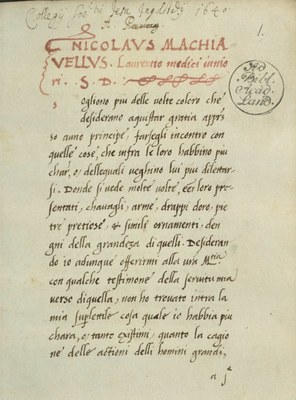 Collegij Soc^tis Jesu 1640
1.
NICOLAVS MACHIA
VELLVS. Laurentio medici iunio
ri. S. D.
Ad
Bibl.
Acad.
Land.
ogliono piu delle uolte coloro che
desiderano aquistar gratia appres
so uno principe, farsegli incontro con
quelle cose, che infra le loro habbino piu
char, o, dellequali ueghino lui piu dilettar
si. Donde si uede molte uolte, eer loro pre
sentati, chauagli, arme, drappi doro, pie
tre pretiose, & simili ornamenti, den
gni della grandeza di quelli. Desideran
do io adunque offerirmi alla u. M^tia
con qualche testimone della seruitu mia
uerso di quella, non ho trouato intra la
mia suplettile cosa quale io habbia piu
chara, o, tanto existimi, quanto la cagio
ne delle actioni delli homini grandi,
a j